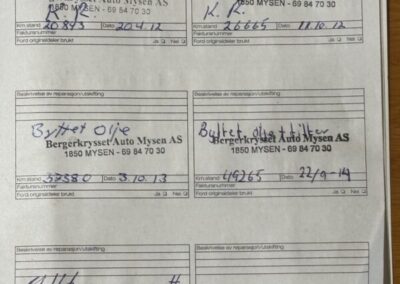 Bergerkrysset Auto Mysen AS
1850 MYSEN - 69 84 70 30
K. R.
Km.stand 20893 Dato 20.4.12
Fakturanummer
Ford originaldeler brukt Ja Nei
1850 MYSEN - 69 84 70 30
K. R.
Km.stand 26665 Dato 11.10.12
Fakturanummer
Ford originaldeler brukt Ja Nei
Beskrivelse av reparasjon/utskifting
Byttet olje
Bergerkrysset Auto Mysen AS
1850 MYSEN - 69 84 70 30
Km.stand 37380 Dato 3.10.13
Fakturanummer
Ford originaldeler brukt Ja Nei
Beskrivelse av reparasjon/utskifting
Byttet olje + filter
Bergerkrysset Auto Mysen AS
1850 MYSEN - 69 84 70 30
Km.stand 49265 Dato 22/9-14
Fakturanummer
Ford originaldeler brukt Ja Nei
Beskrivelse av reparasjon/utskifting
Beskrivelse av reparasjon/utskifting